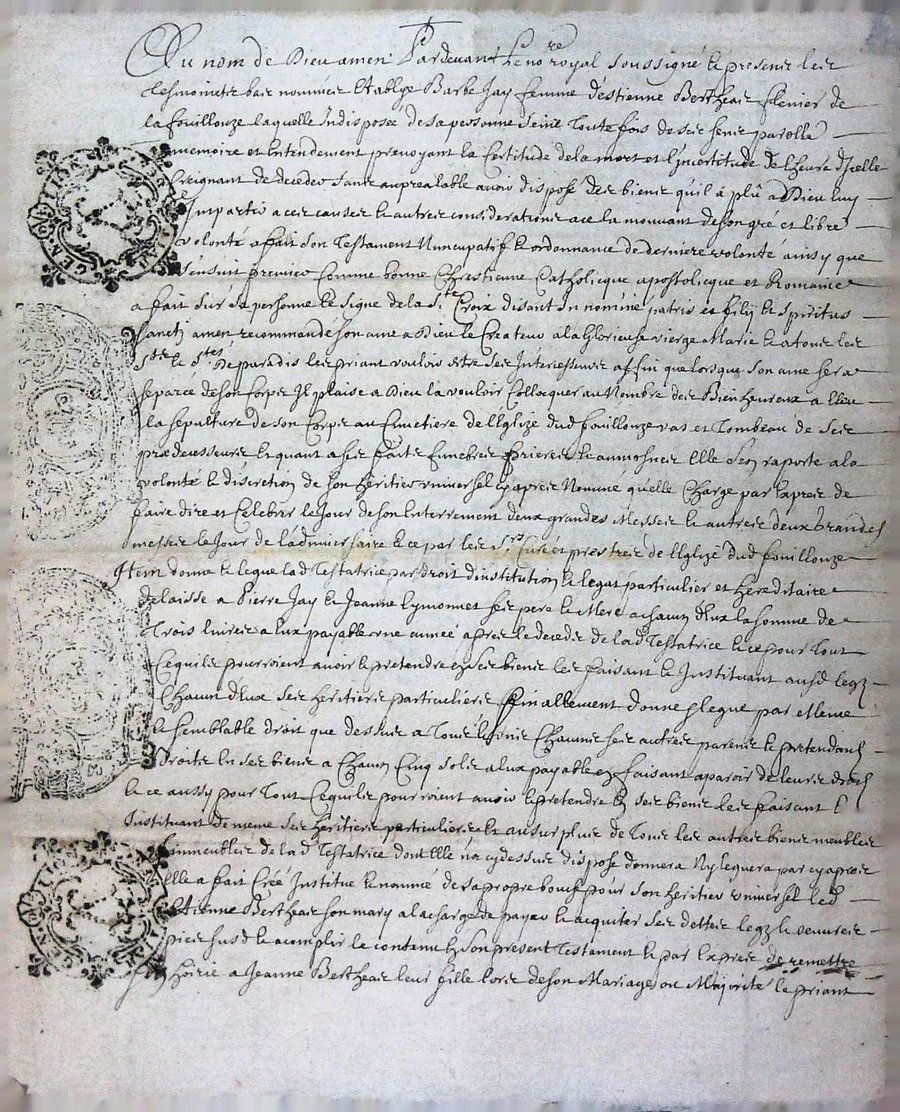 Au nom de Dieu amen Pardevant le no.re royal soussigné et presens les
tesmoins bas nommés Establye Barbe Jay femme d'estienne Bertheas flenier de
la fouillouze laquelle Indisposée de sa personne seine Toutefois de ses sens parolle
memoire et Entendement prevoyant la Certitude de la mort et l'jncertitude de l'heure d'Jcelle
Creignant de deceder sans aupreallable avoir disposé des biens qu'il à plû a Dieu luy
Jmpartir a ces causes et autres considerations a ce la mouvant de son gré et libre
volonté a fait son Testament Nuncupatif et ordonnance de derniere volonté ainsy que
s'ensuit premier Comme bonne Chrestienne Catholicque apostolicque et Romaine
a fait sur sa personne le signe de la S.te Croix disant In nomine patris et filij et spiritus
sancti amen, recommande son ame a Dieu le Createur a la Glorieuse vierge Marie et a tous les
S.ts et S.tes de paradis les priant vouloir estre ses Intercesseurs affin que lorsque son ame sera
separée de son Corps Jl plaise a Dieu la vouloir Collocquer au Nombre des Bienheureux a Eleu
la sepulture de son Corps au Cimetiere de l'Eglize dud fouillouze vas et Tombeau de ses
prædecesseurs Et quant a ses faits funebres prieres et aumosnes Elle s'en raporte a la
volonté et discretion de son heritier universel cy apres Nommé quelle Charge par Expres de
faire dire et Celebrer le Jour de son Enterrement deux grandes Messes et autres deux Grandes
messes le Jour de l'adnniversaire et ce par les s.rs Curé et prestres de l'Eglize dud fouillouze
Jtem donne et legue lad Testatrice par droit d'institution et legat particulier et hereditaire
delaisse a Pierre Jay et Jeanne Lymonnet ses pere et Mere a chacun d'Eux la somme de
Trois livres a Eux payable une année apres le decede de la d Testatrice et ce pour tout
Ce quils pourroient avoir et pretendre en ses biens les faisant et Instituant ausd legz
Chacun d'Eux ses heritiers particuliers finallement donne et legue par Meme
et semblable droit que dessus a Tous ses autres parens et pretendans
Droits En ses biens a Chacun Cinq sols a Eux payable en faisant aparoir de leurs droits
et ce aussy pour tout Ce quils pourroient avoir et pretendre En ses biens les faisant et
Instituant de meme ses heritiers particuliers Et au surplus de Tous les autres biens meubles
et immeubles de la d Testatrice dont Elle n'a cy dessus disposé donnera Ny leguera par cy apres
Elle a fait Créé Institué et nommé de sa propre bouche pour son heritier universel led
Etienne Bertheas son mary a la charge de payer et acquiter ses dettes legz et oeuvres
pies susd et acomplir le contenu En son present Testament et par Expres de remettre
son hoirie a Jeanne Bertheas leur fille lors de son Mariage, ou Majorité le priant